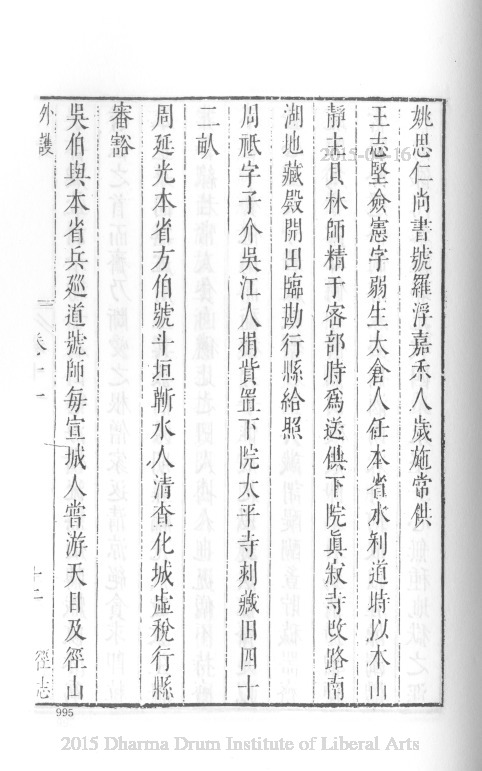 姚思仁尚書號羅浮嘉禾人歲施常供
王志堅僉憲字弱生太倉人任本省水利道時以木山
靜主貝林師精于密部時爲送供下院眞寂寺改路南
湖地藏殿開田臨勘行縣給照
周祇字子介吳江人捐貲置下院太平寺刻藏田四十
二畝
周延光本省方伯號斗垣蘄水人清查化城虛稅行縣
審豁
吳伯與本省兵廵道號師每宣城人嘗游天目及徑山
外護
卷十一
十二
徑志
995
2015 Dharma Drum Institute of Liberal Arts